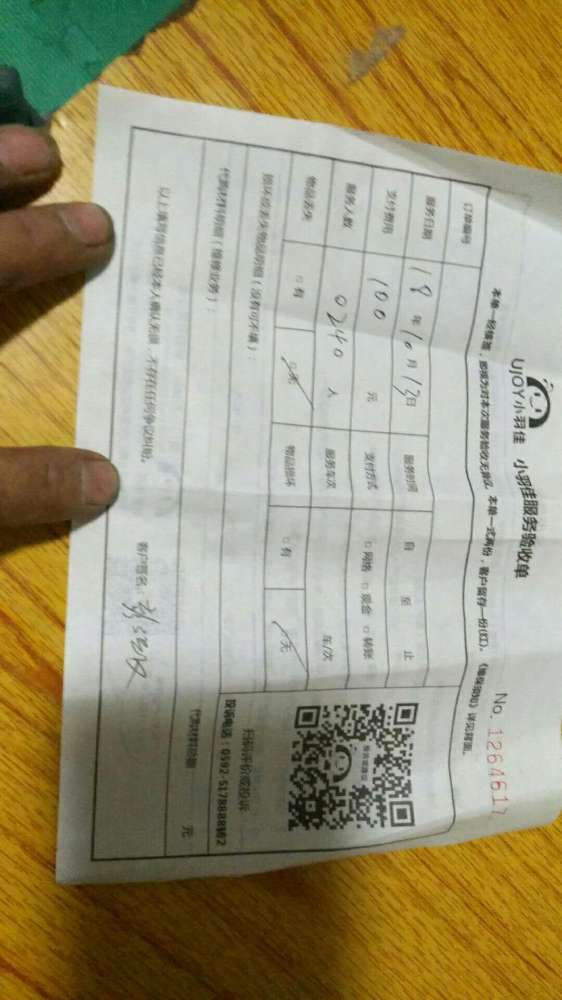 UJOY小羽佳 小羽佳服务验收单
No. 1264617
本单一经签署，即视为对本次服务验收无异议，本单一式两份，客户留存一份(红)。《维保须知》详见背面。
订单编号
服务日期 18年10月13日 服务时间 自 至 止
支付费用 100 元 支付方式 □网络 □现金 □转账
服务人数 0240 人 服务车次 车/次
物品丢失 □有 □无 物品损坏 □有 □无
损坏或丢失物品明细（没有可不填）：
代购材料明细（维修业务）：
代购材料总额： 元
以上填写信息已经本人确认无误，不存在任何争议纠纷。
客户签名：
扫码评价或投诉
投诉电话：0592-5178888转2